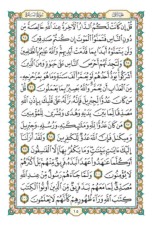 قُلْ إِن كَانَتْ لَكُمُ ٱلدَّارُ ٱلْءَاخِرَةُ عِندَ ٱللَّهِ خَالِصَةً مِّن
دُونِ ٱلنَّاسِ فَتَمَنَّوُا۟ ٱلْمَوْتَ إِن كُنتُمْ صَٰدِقِينَ
وَلَن يَتَمَنَّوْهُ أَبَدًۢا بِمَا قَدَّمَتْ أَيْدِيهِمْ وَٱللَّهُ عَلِيمٌۢ بِٱلظَّٰلِمِينَ
وَلَتَجِدَنَّهُمْ أَحْرَصَ ٱلنَّاسِ عَلَىٰ حَيَوٰةٍ وَمِنَ ٱلَّذِينَ
أَشْرَكُوا۟ يَوَدُّ أَحَدُهُمْ لَوْ يُعَمَّرُ أَلْفَ سَنَةٍ وَمَا هُوَ بِمُزَحْزِحِهِۦ
مِنَ ٱلْعَذَابِ أَن يُعَمَّرَ وَٱللَّهُ بَصِيرٌۢ بِمَا يَعْمَلُونَ قُلْ
مَن كَانَ عَدُوًّا لِّجِبْرِيلَ فَإِنَّهُۥ نَزَّلَهُۥ عَلَىٰ قَلْبِكَ بِإِذْنِ ٱللَّهِ
مُصَدِّقًا لِّمَا بَيْنَ يَدَيْهِ وَهُدًى وَبُشْرَىٰ لِلْمُؤْمِنِينَ
مَن كَانَ عَدُوًّا لِّلَّهِ وَمَلَٰٓئِكَتِهِۦ وَرُسُلِهِۦ وَجِبْرِيلَ
وَمِيكَىٰلَ فَإِنَّ ٱللَّهَ عَدُوٌّ لِّلْكَٰفِرِينَ وَلَقَدْ أَنزَلْنَآ
إِلَيْكَ ءَايَٰتٍۭ بَيِّنَٰتٍ وَمَا يَكْفُرُ بِهَآ إِلَّا ٱلْفَٰسِقُونَ
أَوَكُلَّمَا عَٰهَدُوا۟ عَهْدًا نَّبَذَهُۥ فَرِيقٌ مِّنْهُم بَلْ أَكْثَرُهُمْ
لَا يُؤْمِنُونَ وَلَمَّا جَآءَهُمْ رَسُولٌ مِّنْ عِندِ ٱللَّهِ
مُصَدِّقٌ لِّمَا مَعَهُمْ نَبَذَ فَرِيقٌ مِّنَ ٱلَّذِينَ أُوتُوا۟ ٱلْكِتَٰبَ
كِتَٰبَ ٱللَّهِ وَرَآءَ ظُهُورِهِمْ كَأَنَّهُمْ لَا يَعْلَمُونَ
١٥